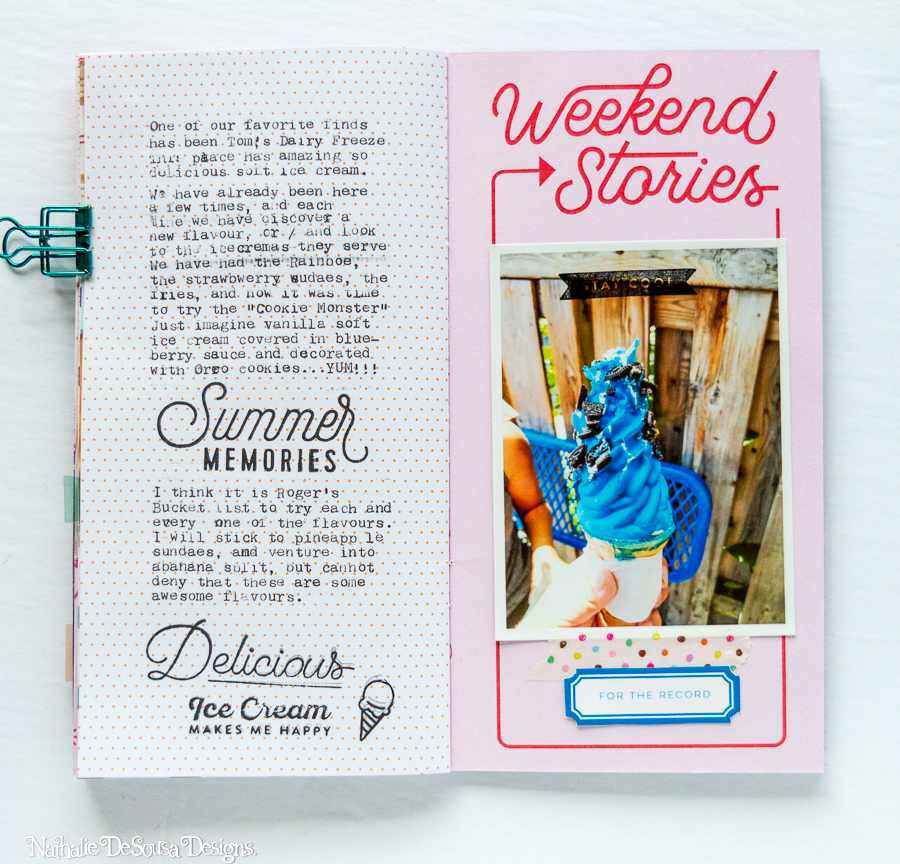 One of our favorite finds
has been Tom's Dairy Freeze
This place has amazing so
delicious soft ice cream.
We have already been here
a few times, and each
time we have discover a
new flavour, or / and look
to the icecremas they serve
We have had the Rainboe,
the strawbwerry sudaes, the
fries, and now it was time
to try the "Cookie Monster"
Just imagine vanilla soft
ice cream covered in blue-
berry sauce and decorated
with Oreo cookies...YUM!!!
Summer
MEMORIES
I think it is Roger's
Bucket list to try each and
every one of the flavours.
I will stick to pineapp le
sundaes, and venture into
abanana split, but cannot
deny that these are some
awesome flavours.
Delicious
Ice Cream
MAKES ME HAPPY
Weekend
Stories
STAY COOL
FOR THE RECORD
Nathalie DeSousa Designs.